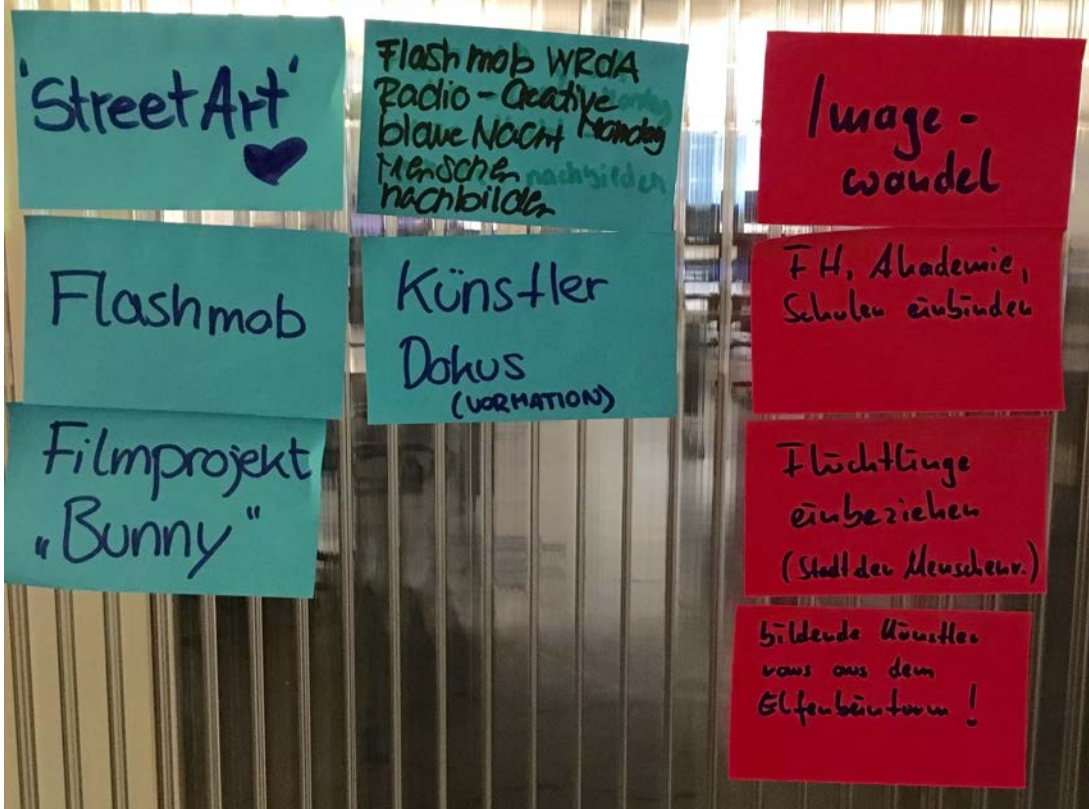 'Street Art'
Flashmob
Filmprojekt
„Bunny"
Flash mob WRdA
Radio - Creative
blaue Nacht Monday
Menschen nachbilden
nachbilden
Künstler
Dokus
(VORMATION)
Image-
wandel
FH, Akademie,
Schulen einbinden
Flüchtlinge
einbeziehen
(Stadt der Menschenr.)
bildende Künstler
raus aus dem
Elfenbeinturm !